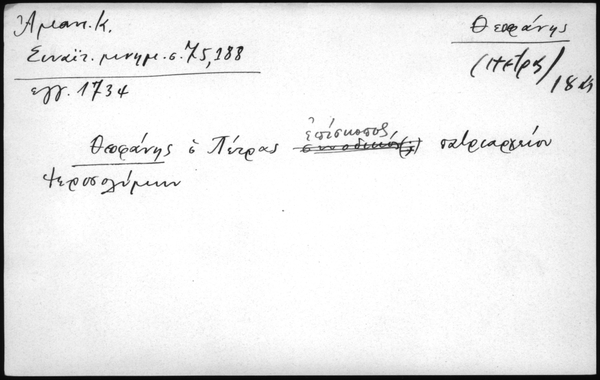 Ἀμαν. Κ.
Σιναϊτ. μνημ. σ. 75, 188
ἔγγ. 1734
Θεοφάνης
(Πέτρας)
18
Θεοφάνης ὁ Πέτρας ἐπίσκοπος πατριαρχείου
Ἱεροσολύμων